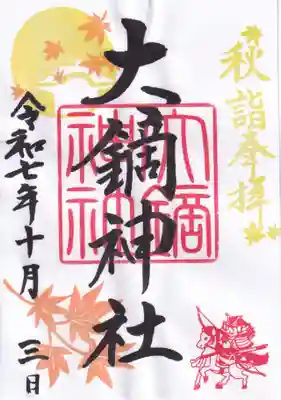 秋詣奉拝
大鏑神社
令和七年十月三日